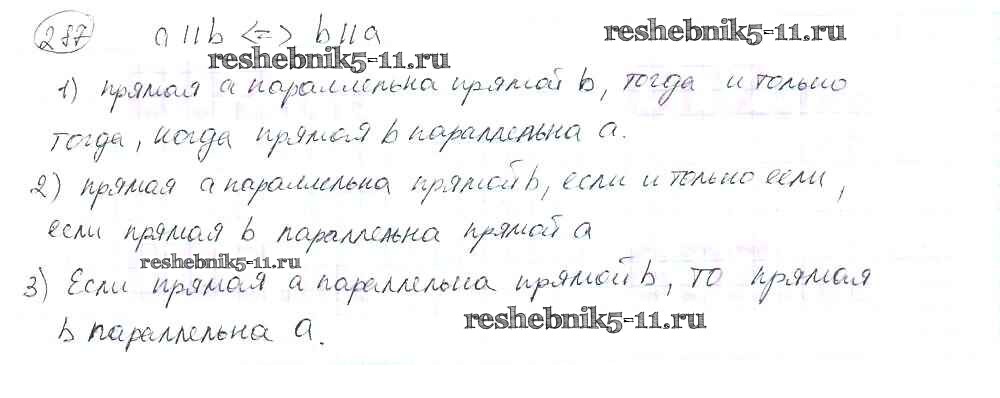 287 a || b <=> b || a reshebnik5-11.ru
reshebnik5-11.ru
1) прямая a параллельна прямой b, тогда и только
тогда, когда прямая b параллельна a.
2) прямая a параллельна прямой b, если и только если,
если прямая b параллельна прямой a
reshebnik5-11.ru
3) Если прямая a параллельна прямой b, то прямая
b параллельна a.
reshebnik5-11.ru